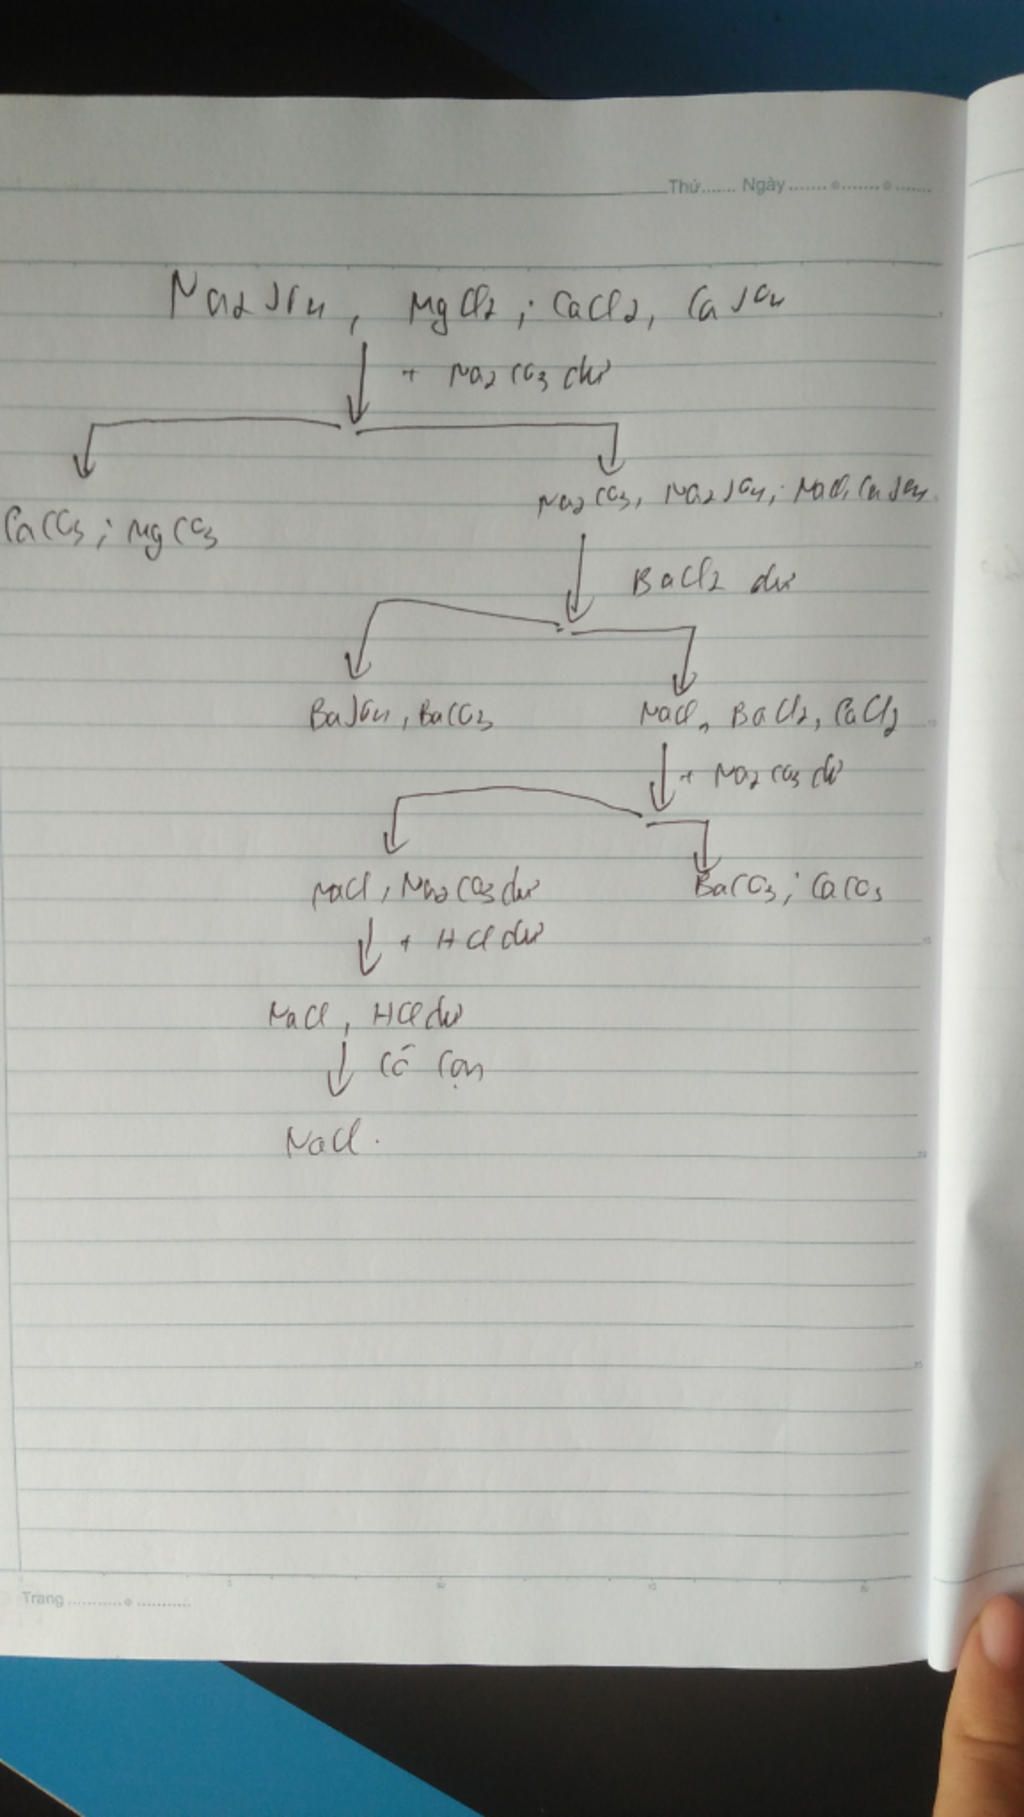 Thứ....... Ngày.......
Na2SO4, MgCl2; CaCl2, CaSO4
+ Na2CO3 dư
Na2CO3, Na2SO4; NaCl, CaSO4
CaCO3; MgCO3
BaCl2 dư
BaSO4, BaCO3 NaCl, BaCl2, CaCl2
+ Na2CO3 dư
NaCl, Na2CO3 dư BaCO3; CaCO3
+ HCl dư
NaCl, HCl dư
Cô cạn
NaCl.
Trang